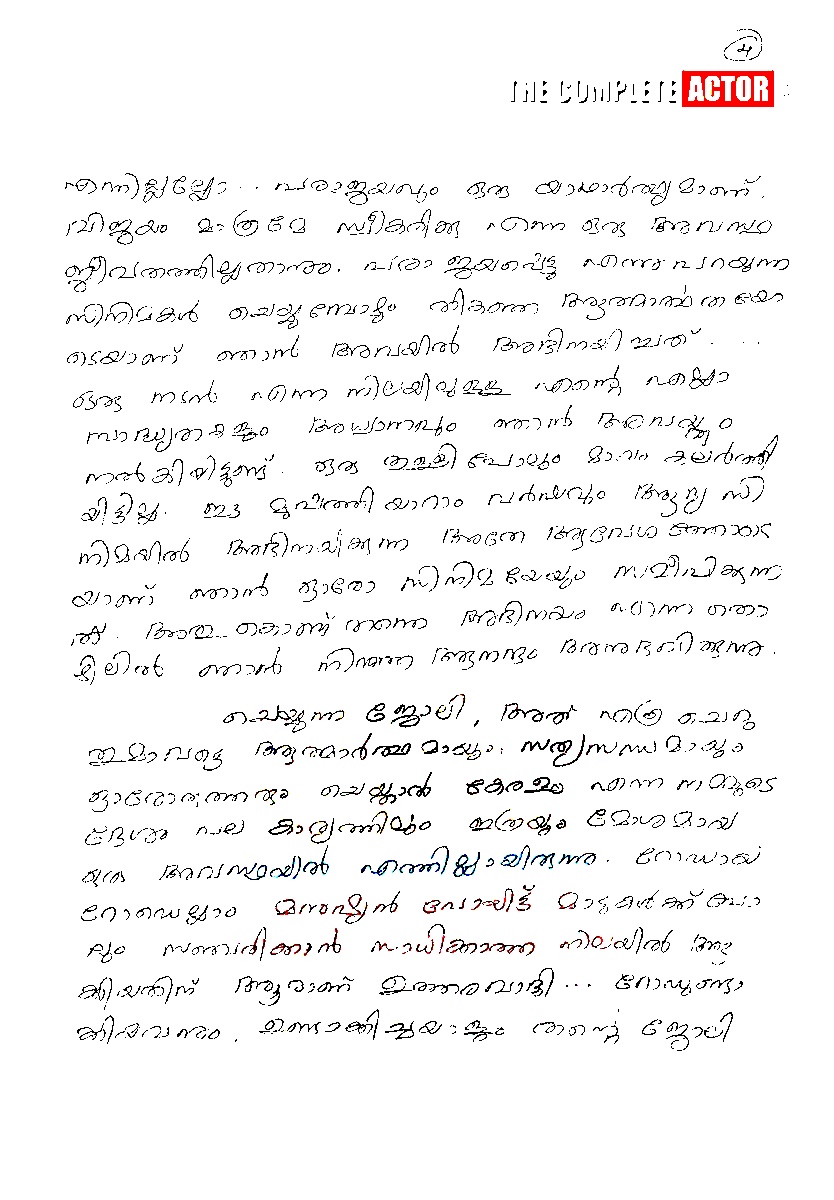 4
THE COMPLETE ACTOR
എന്നില്ലല്ലോ... പരാജയവും ഒരു യാഥാർത്ഥ്യമാണ്.
വിജയം മാത്രമേ സ്വീകരിക്കൂ എന്ന ഒരു അവസ്ഥ
ജീവിതത്തിലില്ലതാനും. പരാജയപ്പെട്ടു എന്നു പറയുന്ന
സിനിമകൾ ചെയ്യുമ്പോളും തികഞ്ഞ ആത്മാർത്ഥതയോ
ടെയാണ് ഞാൻ അവയിൽ അഭിനയിച്ചത്....
ഒരു നടൻ എന്ന നിലയിലുള്ള എന്റെ എല്ലാ
സാദ്ധ്യതകളും അധ്വാനവും ഞാൻ അവയ്ക്കും
നൽകിയിട്ടുണ്ട്. ഒരു തുള്ളി പോലും മായം കലർത്തി
യിട്ടില്ല. ഈ മുപ്പത്തിയാറാം വർഷവും ആദ്യ സി
നിമയിൽ അഭിനയിക്കുന്ന അതേ ആവേശത്തോടെ
യാണ് ഞാൻ ഓരോ സിനിമയേയും സമീപിക്കുന്ന
ത്. അതുകൊണ്ട് തന്നെ അഭിനയം എന്ന തൊ
ഴിലിൽ ഞാൻ നിറഞ്ഞ ആനന്ദം അനുഭവിക്കുന്നു.
ചെയ്യുന്ന ജോലി, അത് എത്ര ചെറു
തുമാവട്ടെ ആത്മാർത്ഥമായും, സത്യസന്ധമായും
ഓരോരുത്തരും ചെയ്താൽ കേരളം എന്ന നമ്മുടെ
ദേശം പല കാര്യത്തിലും ഇത്രയും മോശമായ
ഒരു അവസ്ഥയിൽ എത്തില്ലായിരുന്നു. റോഡായ
റോഡെല്ലാം മനുഷ്യൻ പോയിട്ട് മാടുകൾക്ക് പോ
ലും സഞ്ചരിക്കാൻ സാധിക്കാത്ത നിലയിൽ ആ
ക്കിയതിന് ആരാണ് ഉത്തരവാദി... റോഡുണ്ടാ
ക്കിയവനും, ഉണ്ടാക്കിച്ചയാളും തന്റെ ജോലി